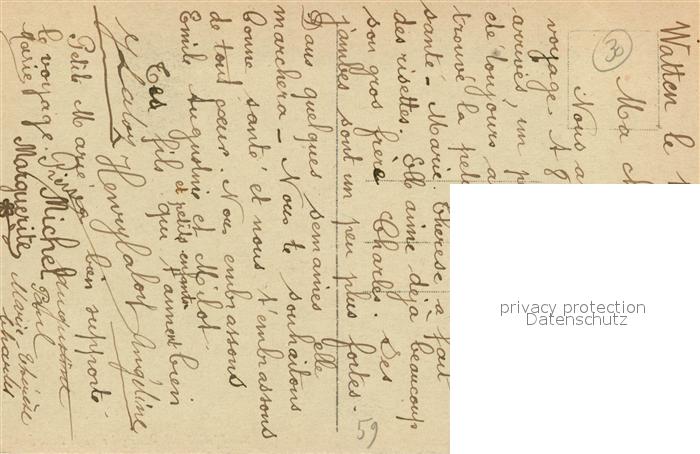 Watten le
Ma ch
Nous a
voyage. A 8
arrivés, un p
de toujours a
trouvé la peti
santé - Marie Thérèse a fait
des risettes. Elle aime déjà beaucoup
son gros frère Charles. Ses
jambes sont un peu plus fortes.
Dans quelques semaines elle
marchera - Nous te souhaitons
bonne santé et nous t'embrassons
de tout cœur. Nous embrassons
Emile Augustine et Milot.
Tes fils et petits enfants
qui t'aiment bien
Henry Angéline
Petite Marie a bien supporté
le voyage.
Marie Michel Augustine
Marguerite Paul
Marie Thérèse
Charles
30
59
privacy protection
Datenschutz